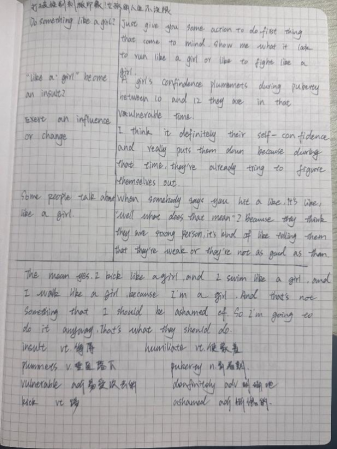 Do something like a girl?
Just give you some action to do first thing
that come to mind. show me what it look
to run like a girl or to fight like a
girl.
"Like a girl" become
an insult?
A girl's confindence plummets during puberty
between 10 and 12 they are in that
vulnerable time.
Exert an influence
or change
I think it definitely their self-confidence
and really puts them down because during
that time, they're already tring to figure
themselves out
Some people talk about
like a girl
when somebody says you hit a like, It's like,
well what does that mean? because they think
they are strong person, it's kind of like telling them
that they're weak or they're not as good as them
The mean yes. I kick like a girl, and I swim like a girl, and
I walk like a girl, because I'm a girl. And that's not
something that I should be ashamed of. So I'm going to
do it anyway. That's what they should do
insult vt. 侮辱
humiliate vt.
plummets v.
puberty n.
vulnerable adj
definitely adv
kick vt 踢
ashamed adj